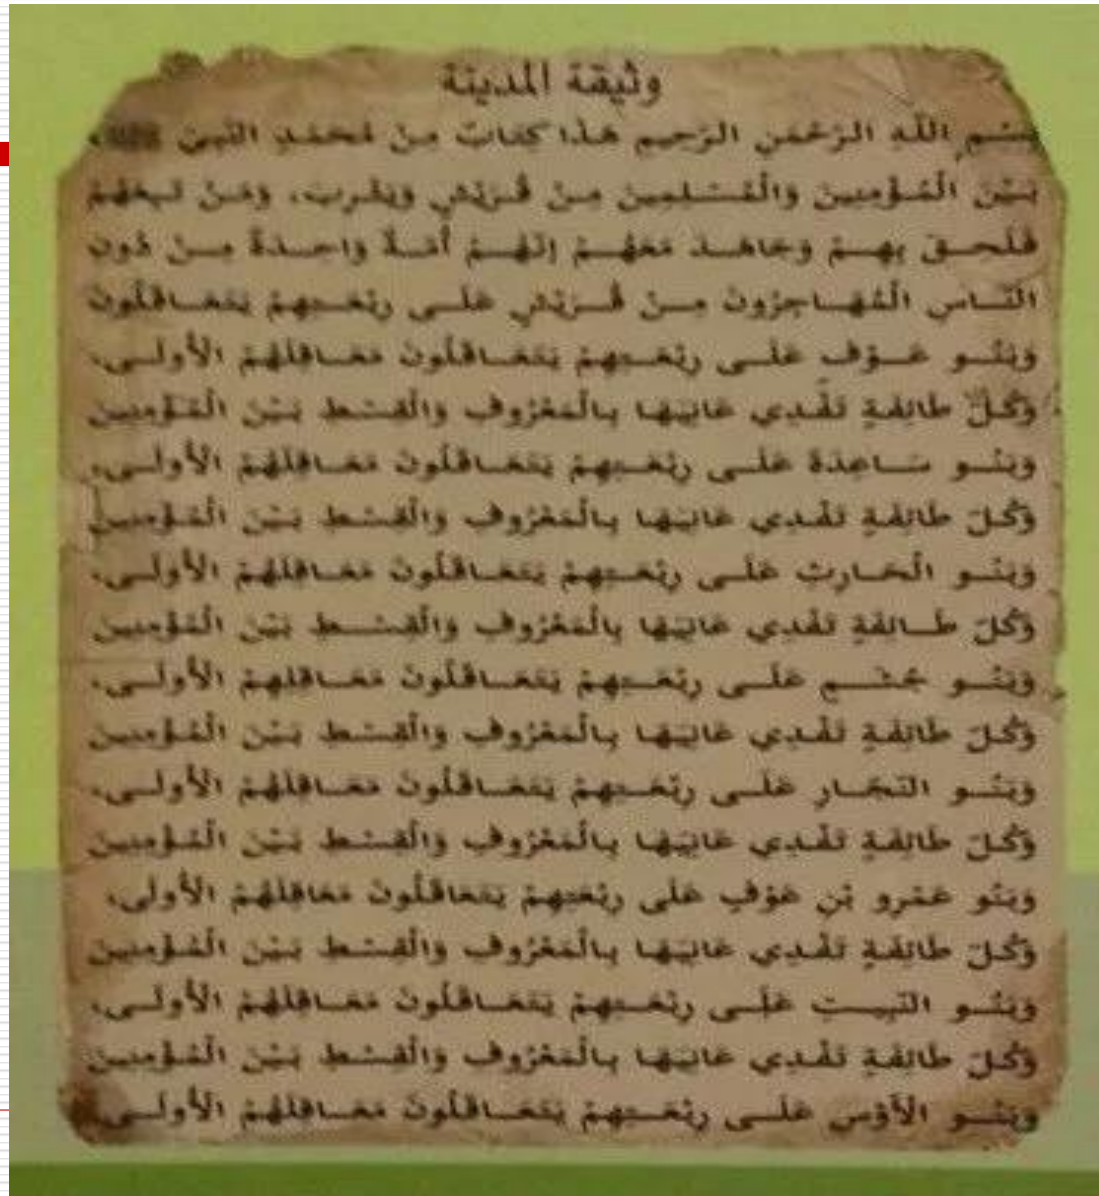 وثيقة المدينة
بِسْمِ اللَّهِ الرَّحْمَنِ الرَّحِيمِ هَذَا كِتَابٌ مِنْ مُحَمَّدٍ النَّبِيِّ ﷺ،
بَيْنَ الْمُؤْمِنِينَ وَالْمُسْلِمِينَ مِنْ قُرَيْشٍ وَيَثْرِبَ، وَمَنْ تَبِعَهُمْ
فَلَحِقَ بِهِمْ وَجَاهَدَ مَعَهُمْ إِنَّهُمْ أُمَّةٌ وَاحِدَةٌ مِنْ دُونِ
النَّاسِ الْمُهَاجِرُونَ مِنْ قُرَيْشٍ عَلَى رِبْعَتِهِمْ يَتَعَاقَلُونَ
وَبَنُو عَوْفٍ عَلَى رِبْعَتِهِمْ يَتَعَاقَلُونَ مَعَاقِلَهُمْ الأُولَى،
وَكُلُّ طَائِفَةٍ تَفْدِي عَانِيَهَا بِالْمَعْرُوفِ وَالْقِسْطِ بَيْنَ الْمُؤْمِنِينَ
وَبَنُو سَاعِدَةَ عَلَى رِبْعَتِهِمْ يَتَعَاقَلُونَ مَعَاقِلَهُمْ الأُولَى،
وَكُلّ طَائِفَةٍ تَفْدِي عَانِيَهَا بِالْمَعْرُوفِ وَالْقِسْطِ بَيْنَ الْمُؤْمِنِينَ
وَبَنُو الْحَارِثِ عَلَى رِبْعَتِهِمْ يَتَعَاقَلُونَ مَعَاقِلَهُمْ الأُولَى،
وَكُلّ طَائِفَةٍ تَفْدِي عَانِيَهَا بِالْمَعْرُوفِ وَالْقِسْطِ بَيْنَ الْمُؤْمِنِينَ
وَبَنُو جُشَمٍ عَلَى رِبْعَتِهِمْ يَتَعَاقَلُونَ مَعَاقِلَهُمْ الأُولَى،
وَكُلّ طَائِفَةٍ تَفْدِي عَانِيَهَا بِالْمَعْرُوفِ وَالْقِسْطِ بَيْنَ الْمُؤْمِنِينَ
وَبَنُو النَّجَّارِ عَلَى رِبْعَتِهِمْ يَتَعَاقَلُونَ مَعَاقِلَهُمْ الأُولَى،
وَكُلّ طَائِفَةٍ تَفْدِي عَانِيَهَا بِالْمَعْرُوفِ وَالْقِسْطِ بَيْنَ الْمُؤْمِنِينَ
وَبَنُو عَمْرِو بْنِ عَوْفٍ عَلَى رِبْعَتِهِمْ يَتَعَاقَلُونَ مَعَاقِلَهُمْ الأُولَى،
وَكُلّ طَائِفَةٍ تَفْدِي عَانِيَهَا بِالْمَعْرُوفِ وَالْقِسْطِ بَيْنَ الْمُؤْمِنِينَ
وَبَنُو النَّبِيتِ عَلَى رِبْعَتِهِمْ يَتَعَاقَلُونَ مَعَاقِلَهُمْ الأُولَى،
وَكُلّ طَائِفَةٍ تَفْدِي عَانِيَهَا بِالْمَعْرُوفِ وَالْقِسْطِ بَيْنَ الْمُؤْمِنِينَ
وَبَنُو الْأَوْسِ عَلَى رِبْعَتِهِمْ يَتَعَاقَلُونَ مَعَاقِلَهُمْ الأُولَى